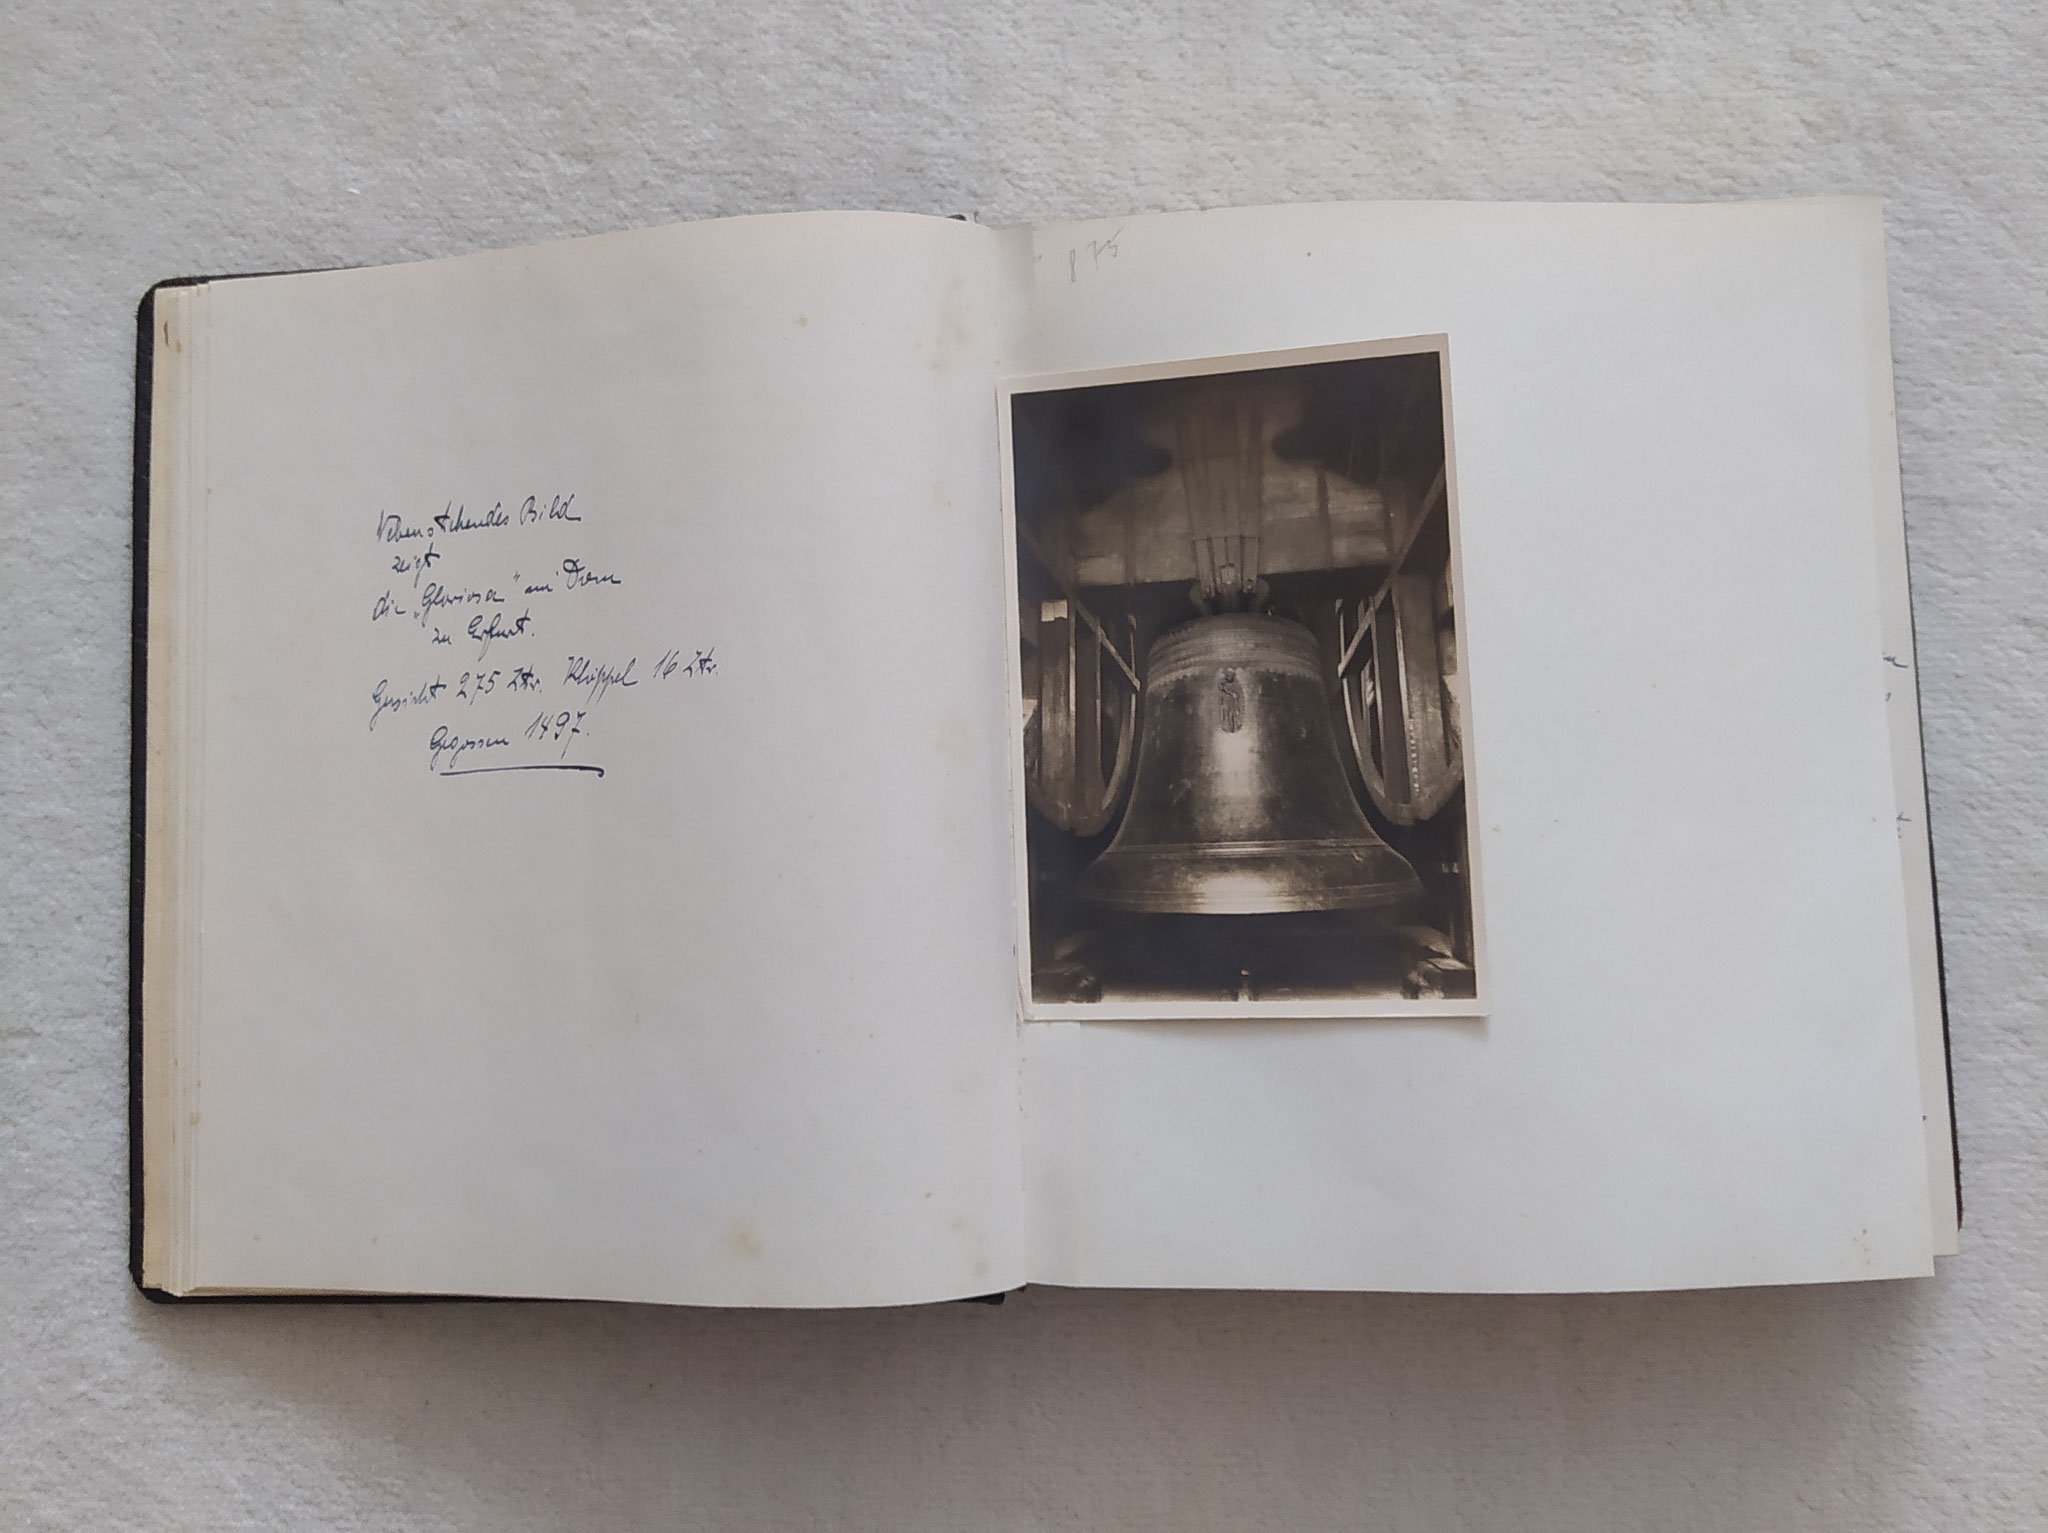 Nebenstehendes Bild
zeigt
die „Gloriosa" im Dom
zu Erfurt.
Gewicht 275 Ztr. Klöppel 16 Ztr.
Gegossen 1497.
875